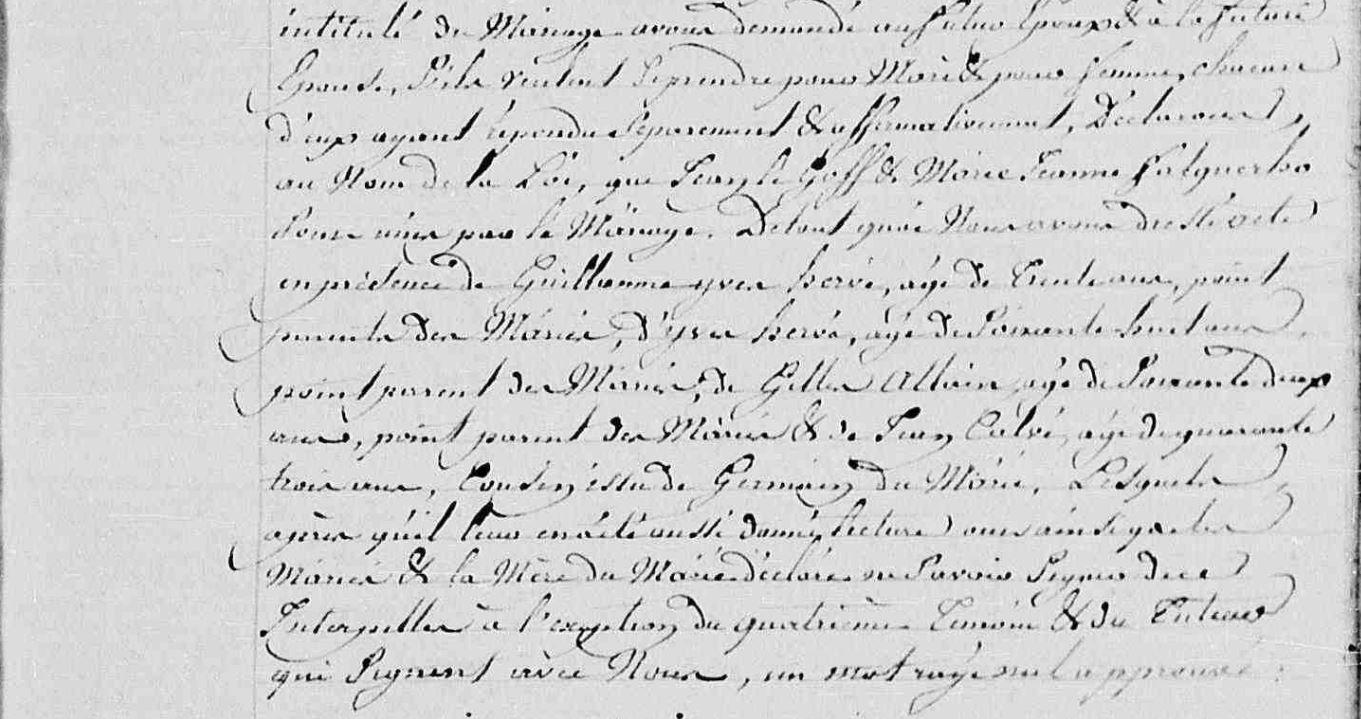 intitulé du Mariage avons demandé au futur Epoux & à la future
Epouse, S'ils veulent Se prendre pour Mari & pour femme, chacun
d'eux ayant répondu Séparement & affirmativement, Déclarons
au Nom de la Loi, que Jean le Goff & Marie Jeanne
Sont unis par le Mariage. De tout quoi Nous avons dressé acte
en présence de Guillaume yves hervé, agé de Trente ans, point
parents des Mariés, d'yves hervé, agé de Soixante huit ans
point parent des Mariés, de Gilles Allain, agé de Soixante deux
ans, point parent des Mariés & de Jean Calvé, agé de quarante
trois ans, Cousin issu de Germain du Marié, Lesquels
après qu'il leur en a été aussi donné lecture ainsi que les
Mariés & la Mère du Marié déclaré ne Savoir Signer de ce
Interpellés à l'exception du quatrième Temoin & du Tuteur
qui Signent avec Nous, un mot rayé nul approuvé.